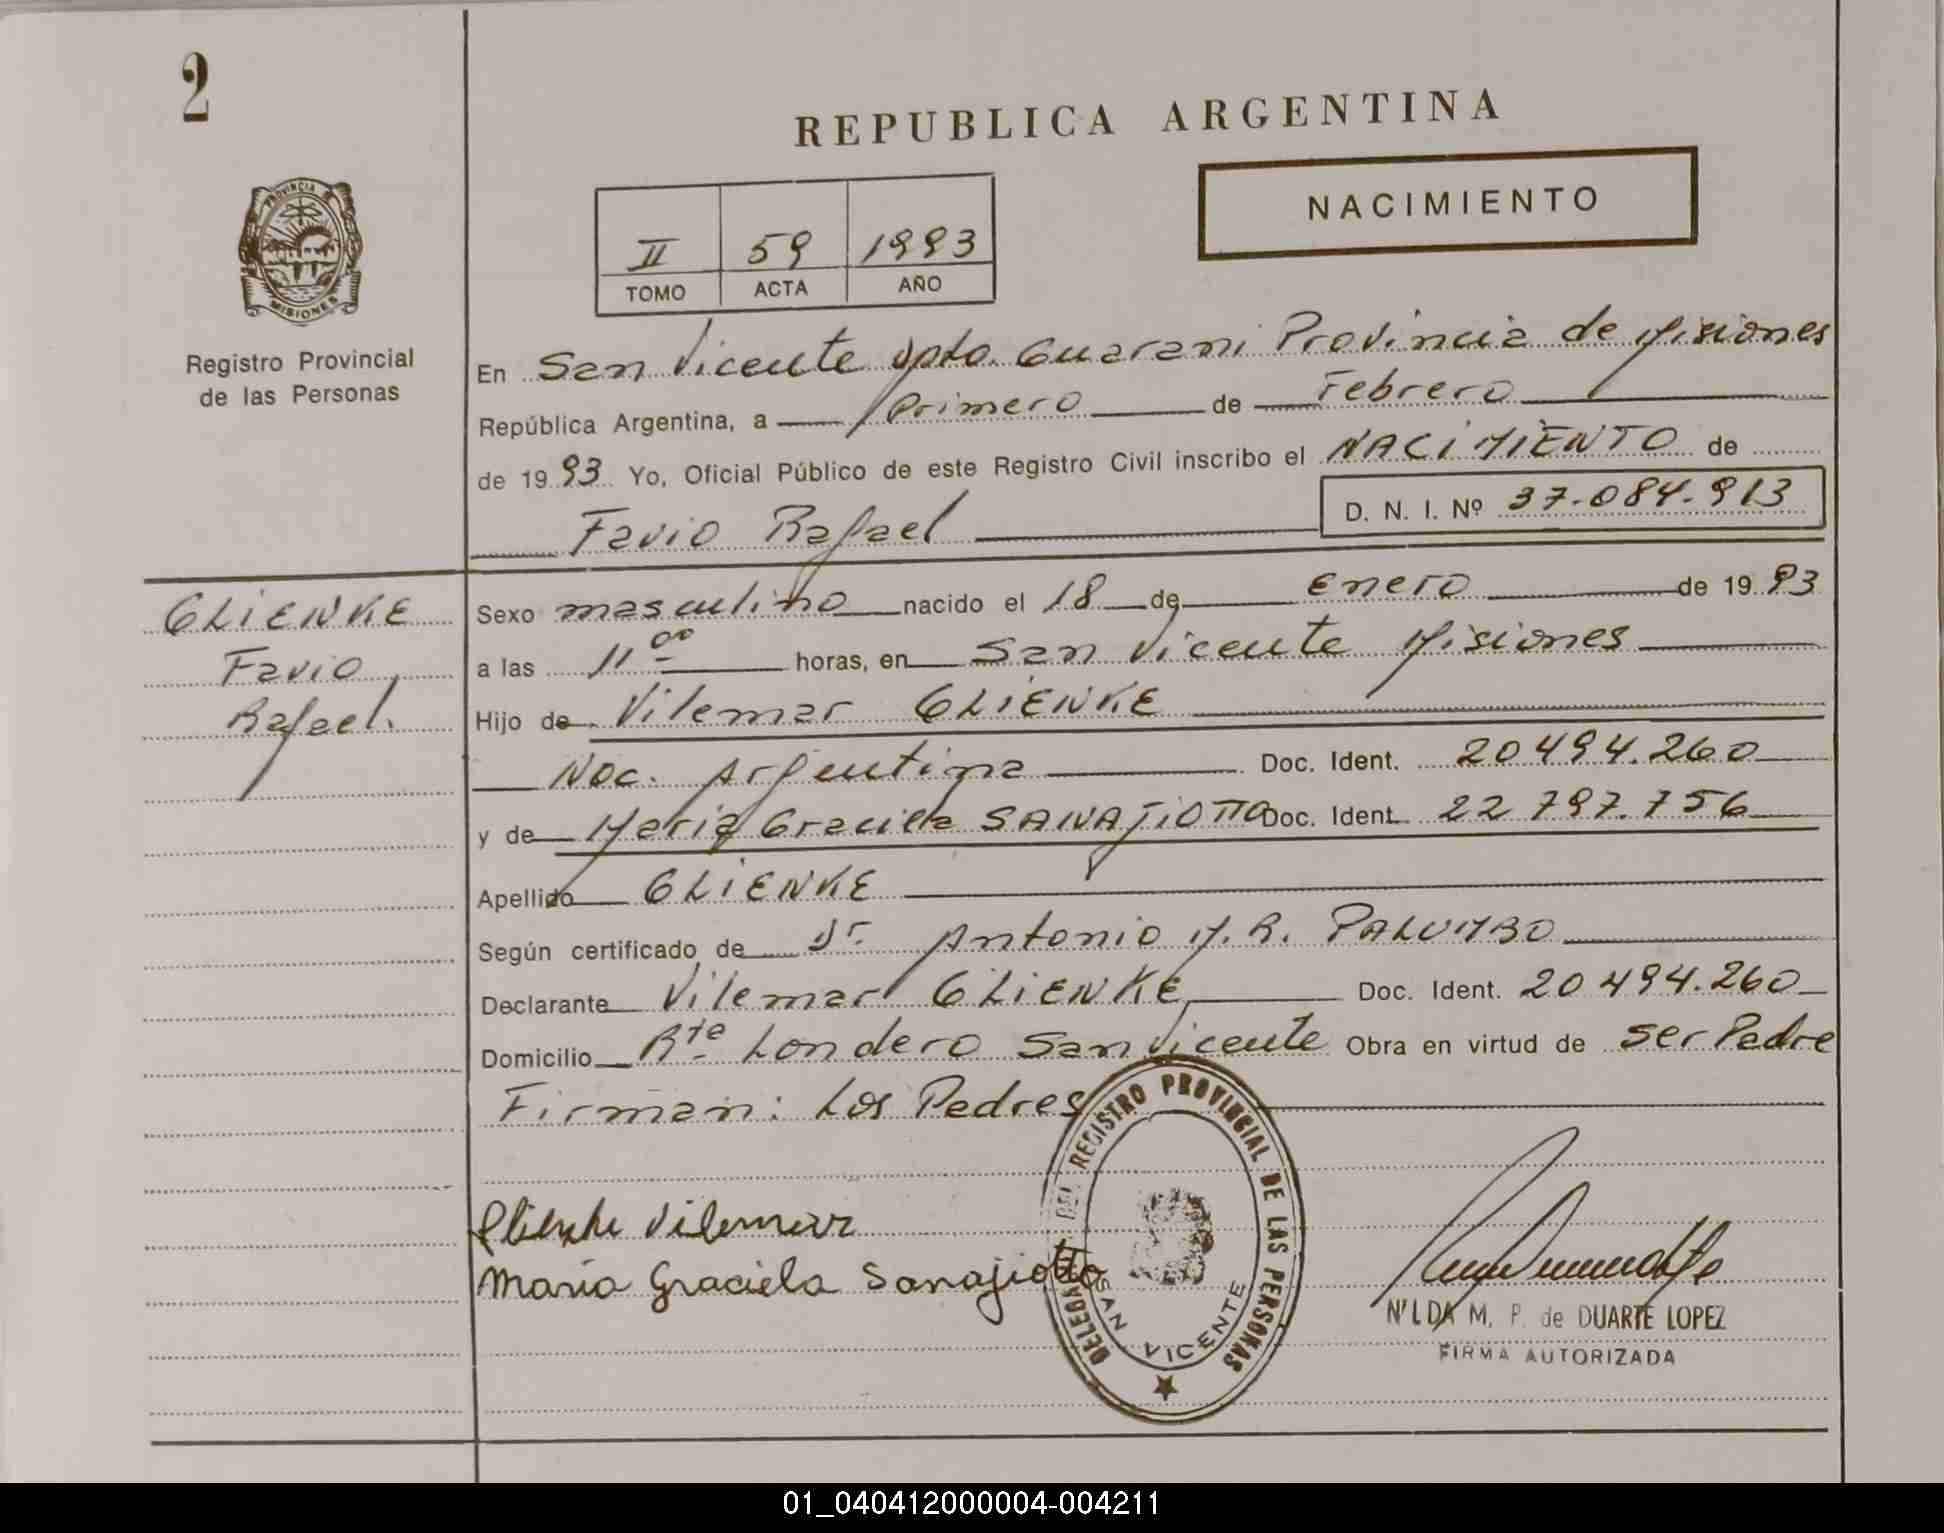 2
REPUBLICA ARGENTINA
NACIMIENTO
II 59 1993
TOMO ACTA AÑO
PROVINCIA
MISIONES
Registro Provincial
de las Personas
En San Vicente Dpto. Guarani Provincia de Misiones
República Argentina, a Primero de Febrero
de 19 93 Yo, Oficial Público de este Registro Civil inscribo el NACIMIENTO de
Favio Rafael D. N. I. Nº 37.084.913
GLIENKE
Favio
Rafael.
Sexo masculino nacido el 18 de Enero de 19 93
a las 11 00 horas, en San Vicente Misiones
Hijo de Vilemar GLIENKE
Nac. Argentina Doc. Ident. 20 494.260
y de Maria Graciela SANAJIOTTO Doc. Ident. 22 797.756
Apellido GLIENKE
Según certificado de Dr. Antonio M. R. PALUMBO
Declarante Vilemar GLIENKE Doc. Ident. 20 494.260
Domicilio Rte Londero San Vicente Obra en virtud de ser Padre
Firman: Los Padres
Glienke Vilemar
Maria Graciela Sanajiotto
DELEGA DEL REGISTRO PROVINCIAL DE LAS PERSONAS
SAN VICENTE
NILDA M. P. de DUARTE LOPEZ
FIRMA AUTORIZADA
01_040412000004-004211